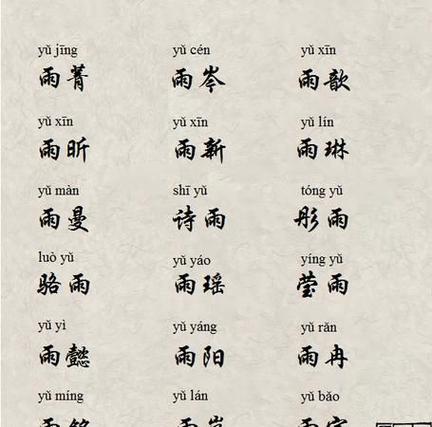 yǔ jīng yǔ cén yǔ xīn
雨菁 雨岑 雨歆
yǔ xīn yǔ xīn yǔ lín
雨昕 雨新 雨琳
yǔ màn shī yǔ tóng yǔ
雨曼 诗雨 彤雨
luò yǔ yǔ yáo yíng yǔ
骆雨 雨瑶 莹雨
yǔ yì yǔ yáng yǔ rǎn
雨懿 雨阳 雨冉
yǔ míng yǔ lán yǔ bǎo
雨 雨岚 雨